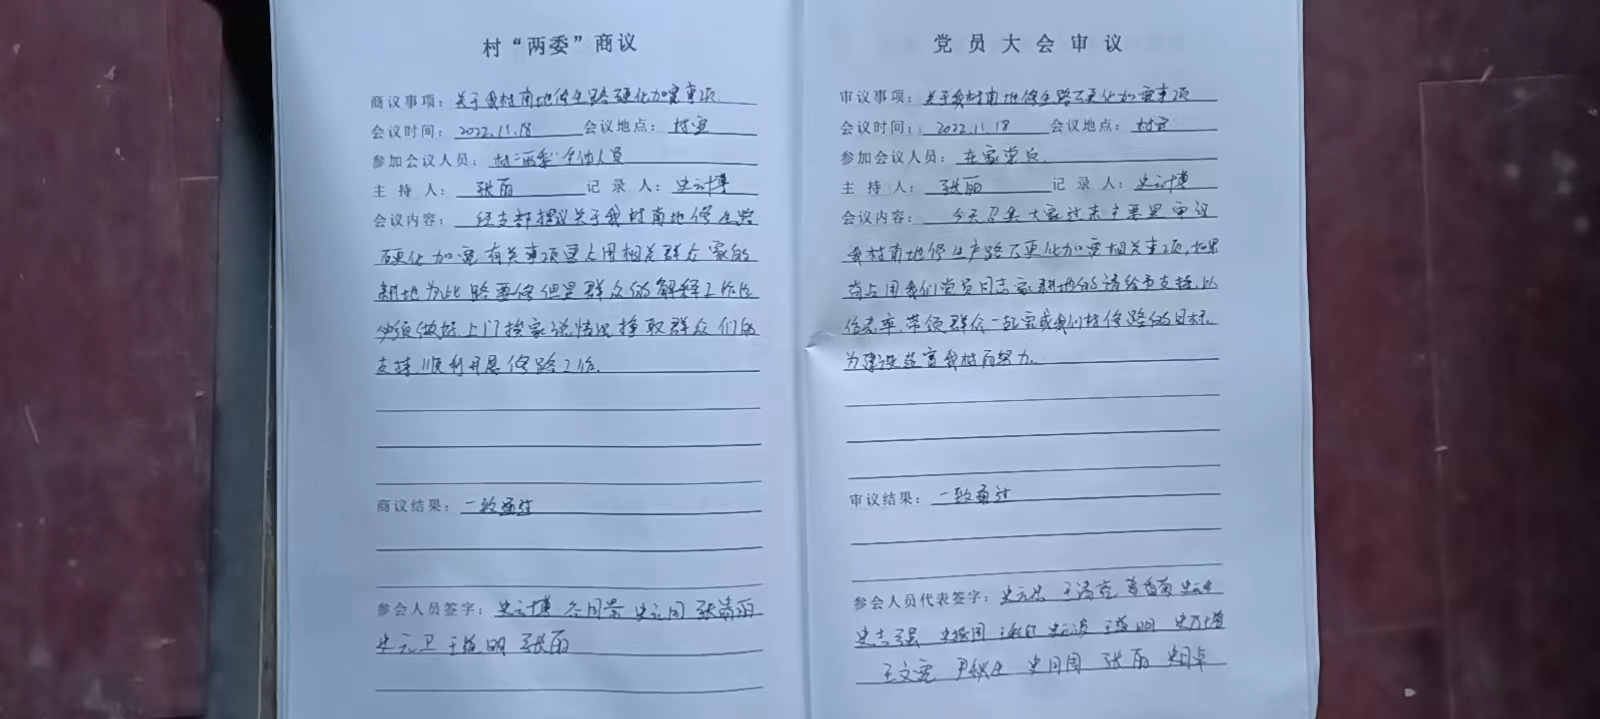 村“两委”商议
商议事项：关于我村南地修生路硬化加宽事项
会议时间：2022.11.18 会议地点：村室
参加会议人员：村“两委”全体人员
主持人：张丽 记录人：史云博
会议内容：经支部提议关于我村南地修生路
硬化加宽有关事项要占用相关群众家的
耕地为此路要修但是群众的解释工作也
必须做好上门挨家说情况挣取群众们的
支持顺利开展修路工作.
商议结果：一致通过
参会人员签字：史云博 史元同 张丽
史元卫 王 明 张丽
党员大会审议
审议事项：关于我村南地修生路硬化加宽事项
会议时间：2022.11.18 会议地点：村室
参加会议人员：在家党员.
主持人：张丽 记录人：史云博
会议内容：今天召集大家过来主要是审议
我村南地修生产路硬化加宽相关事项,如果
当占用我们党员同志家耕地的请给予支持,以
作表率.带领群众一起完成我们村修路的目标.
为建设致富我村而努力.
审议结果：一致通过
参会人员代表签字：王 亮
史志强 史 周 史云波 王 明 史云博
王文 史月周 张丽